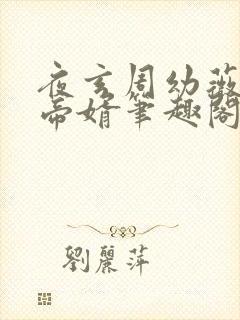 夜玄周幼薇
帝婿笔趣阁
劉麗萍